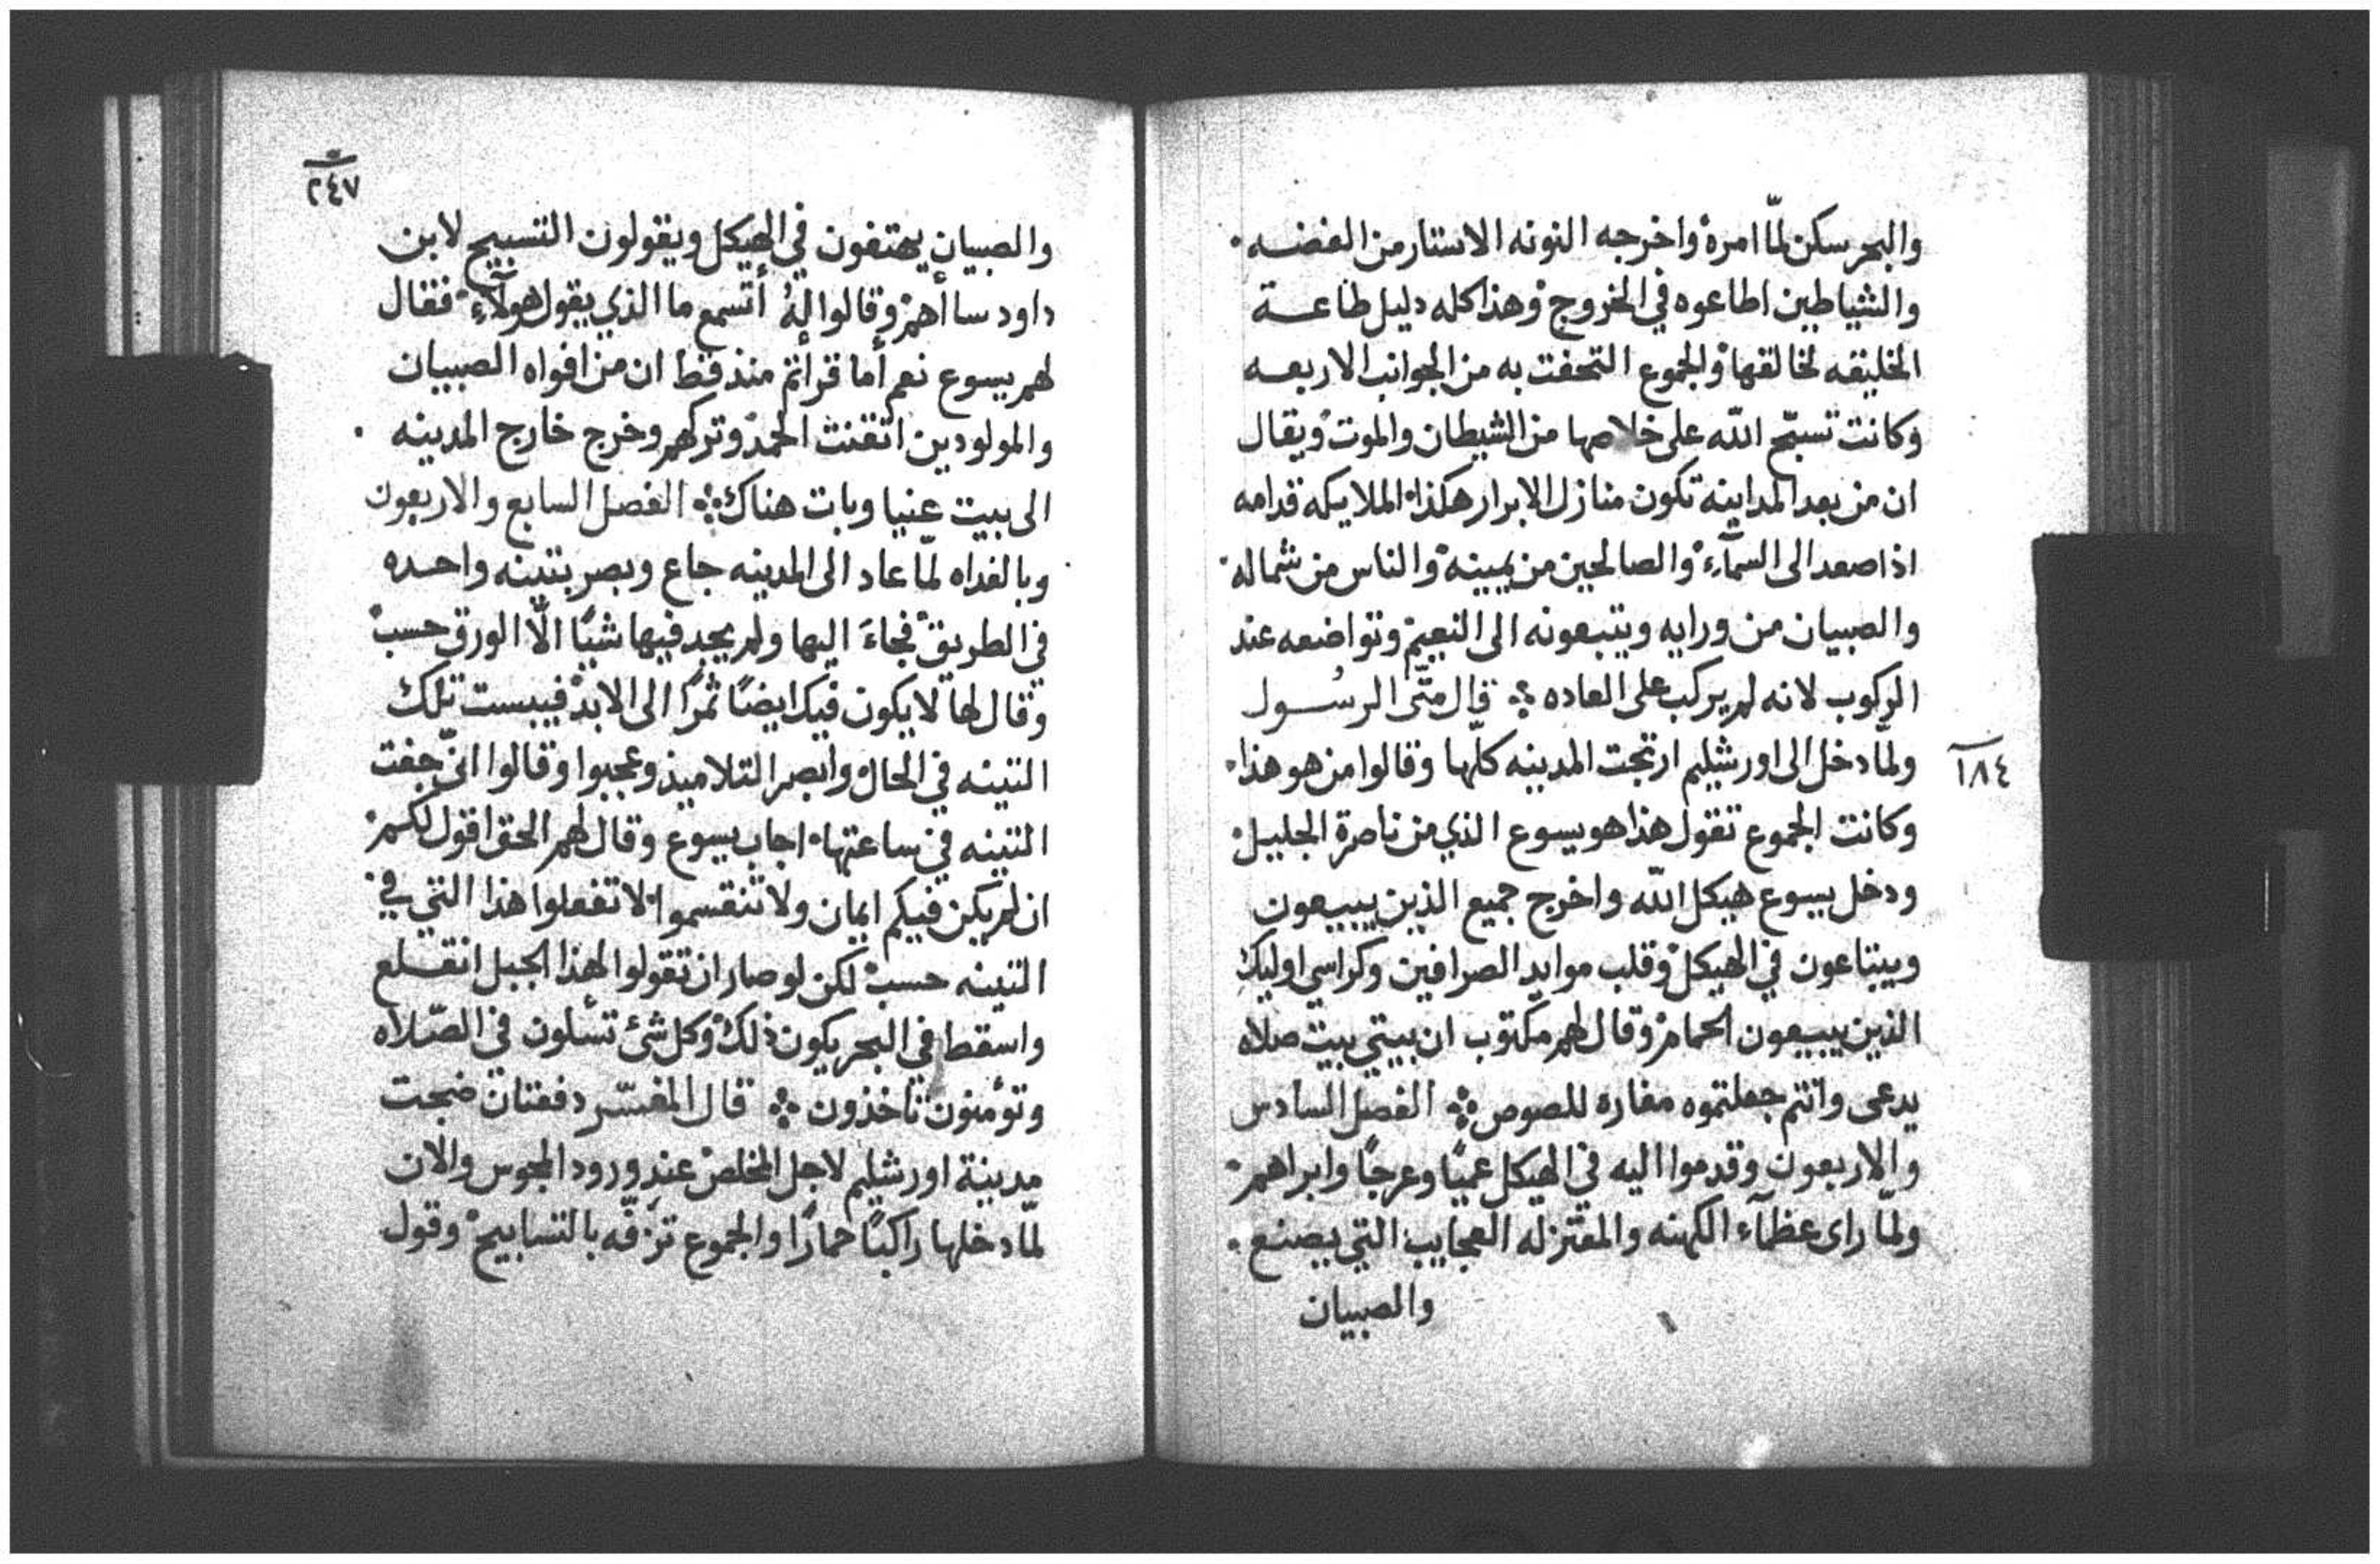 والبحر سكن لمّا امره واخرجه النونه الاستار من الفضه.
والشياطين اطاعوه في الخروج وهذا كله دليل طاعة
الخليقه لخالقها والجموع التحفت به من الجوانب الاربعه
وكانت تسبّح الله على خلاصها من الشيطان والموت ويقال
ان من بعد المداينه تكون منازل الابرار هكذا الملايكه قدامه
اذا صعد الى السمآء والصالحين من يمينه والناس من شماله.
والصبيان من ورايه ويتبعونه الى النعيم وتواضعه عند
الركوب لانه لم يركب على العاده ܀ قال متّى الرسُول
١٨٤
ولمّا دخل الى اورشليم ارتجت المدينه كلّها وقالوا من هو هذا.
وكانت الجموع تقول هذا هو يسوع الذي من ناصرة الجليل.
ودخل يسوع هيكل الله واخرج جميع الذين يبيعون
ويبتاعون في الهيكل وقلب موايد الصرافين وكراسي اوليك
الذين يبيعون الحمام وقال لهم مكتوب ان بيتي بيت صلاه
يدعى وانتم جعلتموه مغاره للصوص ܀ الفصل السادس
والاربعون وقدموا اليه في الهيكل عميًا وعرجًا وابراهم.
ولمّا راى عظمآء الكهنه والمعتزله العجايب التي يصنع.
والصبيان
٢٤٧
والصبيان يهتفون في الهيكل ويقولون التسبيح لابن
داود ساأهم وقالوا لهُ أتسمع ما الذي يقول هولآء فقال
لهم يسوع نعم أما قرأتم منذ قط ان من افواه الصبيان
والمولودين اتقنت الحمد وتركهم وخرج خارج المدينه.
الى بيت عنيا وبات هناك ܀ الفصل السابع والاربعون
وبالغداه لمّا عاد الى المدينه جاع وبصر بتينه واحده
في الطريق فجاءَ اليها ولم يجد فيها شيًا الّا الورق حسب
وقال لها لا يكون فيك ايضًا ثمرًا الى الابد فيبست تلك
التينه في الحال وابصر التلاميذ وعجبوا وقالوا انّى جفت
التينه في ساعتها. اجاب يسوع وقال لهم الحق اقول لكم.
ان لم يكن فيكم ايمان ولا تنقسموا. لا تفعلوا هذا التي في.
التينه حسب لكن لو صار ان تقولوا لهذا الجبل انقلع
واسقط في البحر يكون ذلك وكل شئ تسٔلون في الصّلاه
وتؤمنون تاخذون ܀ قال المفسّر دفعتان ضجت
مدينة اورشليم لاجل المخلص عند ورود المجوس والان
لمّا دخلها راكبًا حمارًا والجموع تزفّه بالتسابيح وقول